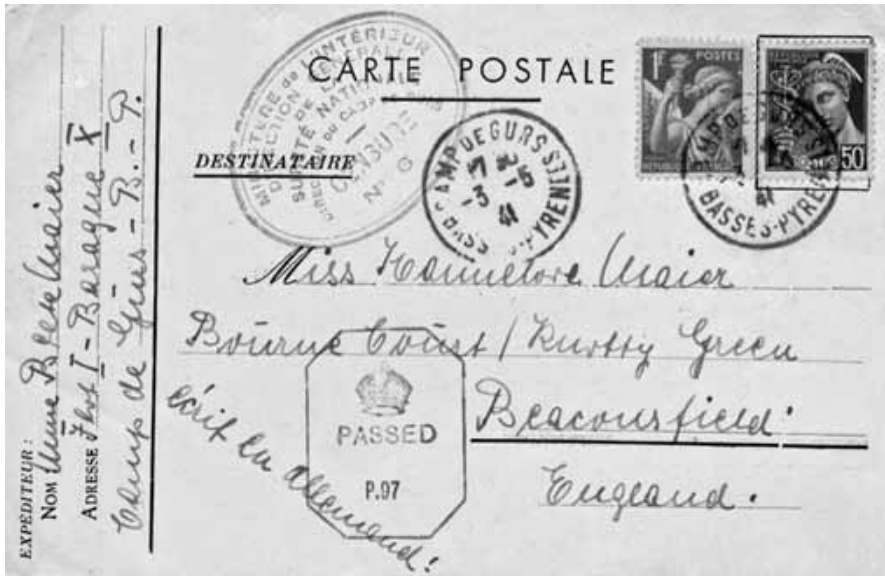 CARTE POSTALE
DESTINATAIRE
MINISTÈRE de L'INTÉRIEUR
DIRECTION GÉNÉRALE
DE LA
SURETÉ NATIONALE
CENSURE
N° 6
CAMP DE GURS
17 15
3 - 1
41
BASSES-PYRENEES
1F POSTES
50
CAMP DE GURS
41
BASSES-PYRENEES
Miss Hannelore Maier
Bourne Court / Knotty Green
Beaconsfield.
England.
écrit en allemand!
PASSED
P.97
EXPÉDITEUR :
NOM Mme Maier
ADRESSE Ilot I - Baraque X
Camp de Gurs - B. - P.